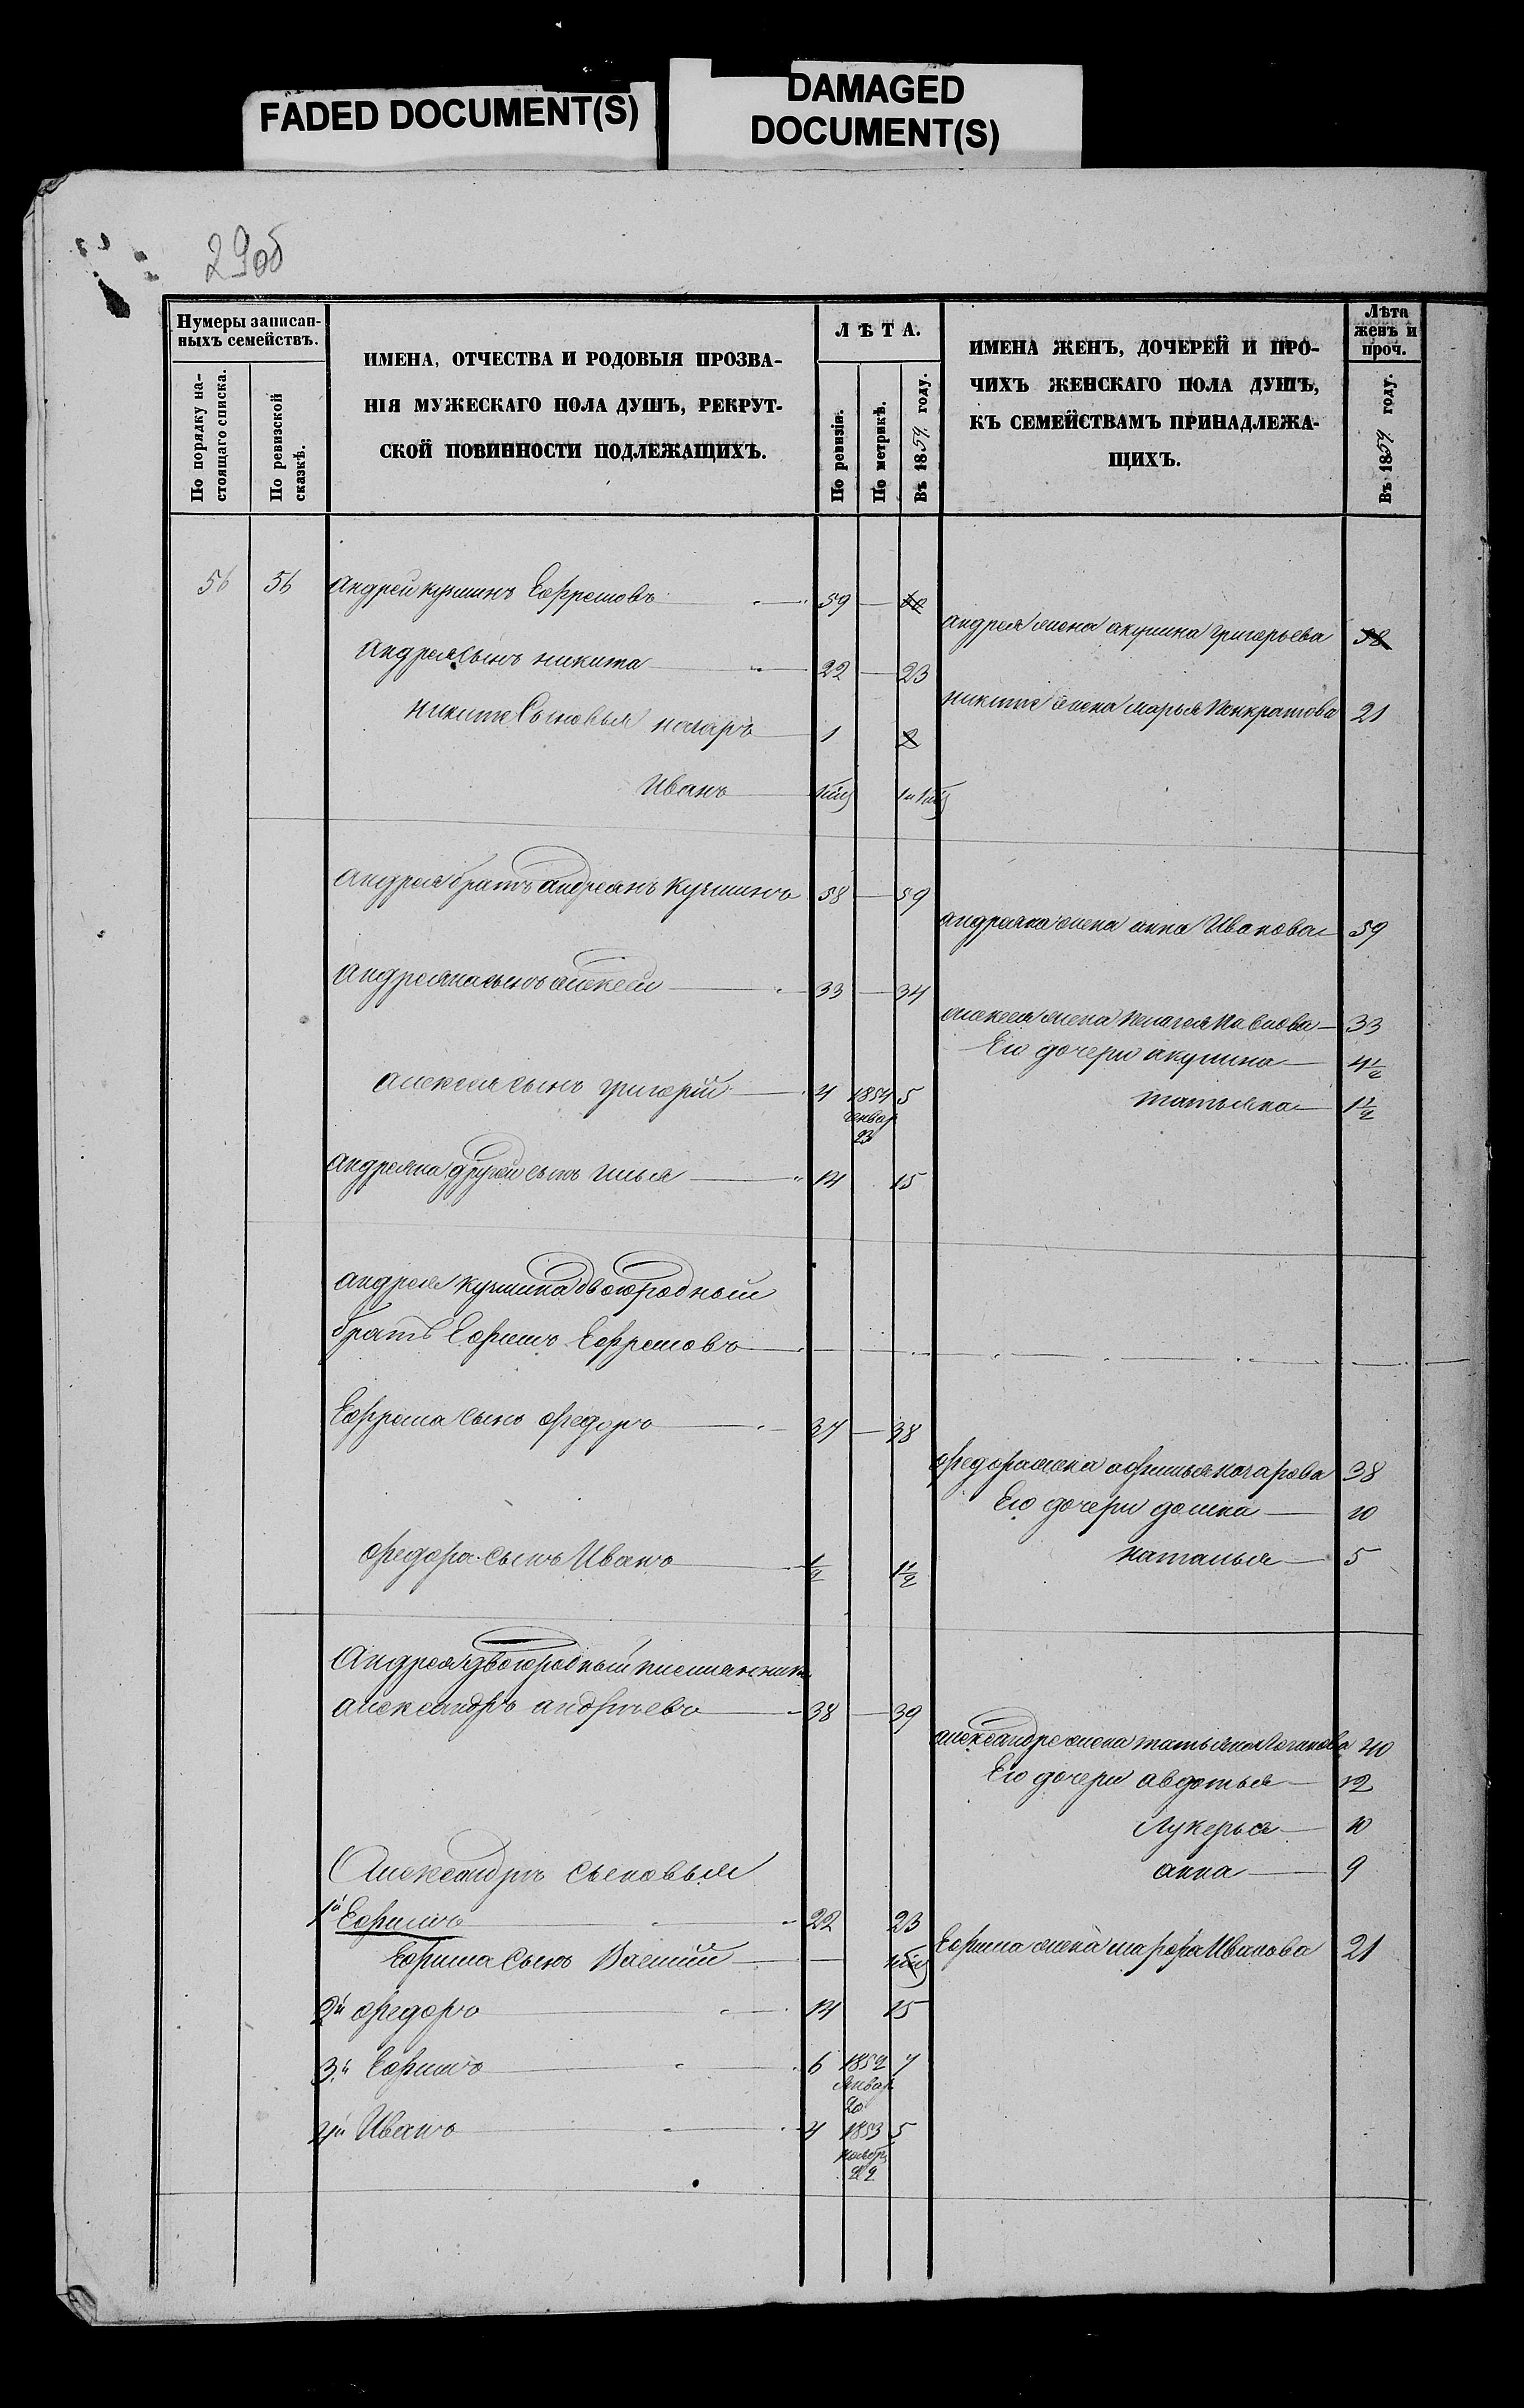 FADED DOCUMENT(S)
DAMAGED
DOCUMENT(S)
29об
Нумеры записан-
ныхъ семействъ.
По порядку на-
стоящаго списка.
По ревизской
сказкѣ.
ИМЕНА, ОТЧЕСТВА И РОДОВЫЯ ПРОЗВА-
НІЯ МУЖЕСКАГО ПОЛА ДУШЪ, РЕКРУТ-
СКОЙ ПОВИННОСТИ ПОДЛЕЖАЩИХЪ.
ЛѢТА.
По ревизіи.
По метрикѣ.
Въ 1859 году.
ИМЕНА ЖЕНЪ, ДОЧЕРЕЙ И ПРО-
ЧИХЪ ЖЕНСКАГО ПОЛА ДУШЪ,
КЪ СЕМЕЙСТВАМЪ ПРИНАДЛЕЖА-
ЩИХЪ.
Лѣта
женъ и
проч.
Въ 1859 году.
56 56 Андрей кузминъ Ефремовъ 59 — 60
андрея жена акулина григорьева 58
Андрея сынъ никита 22 — 23
никите жена марья Панкратова 21
никите Сыновья назаръ 1 2
Иванъ
андрея братъ андреянъ Кузминъ 58 — 59
андреяна жена анна Иванова 59
андреяна сынъ алексей 33 — 34
алексея жена Пелагея Павлова 33
Его дочери акулина 4½
алексея сынъ григорій 4 1854 5
генвар
23
татьяна 1½
андреяна другой сынъ илья 14 15
андрея кузмина двоюродный
братъ Ефимъ Ефремовъ
сынъ федоръ 37 — 38
федора жена афимья назарова 38
Его дочери домна 10
федора сынъ Иванъ ½ 1½
наталья 5
Андрея двоюродный племянникъ
александръ андреевъ 38 — 39
александре жена татьяна 40
Его дочери авдотья 12
Лукерья 10
анна 9
Александръ сыновья
1й Ефимъ 22 23
Ефима жена марфа Иванова 21
Ефима сынъ Василий —
2й федоръ 14 15
3й Ефимъ 6 1852 7
Январ
20
4й Иванъ 4 1853 5
ноябр